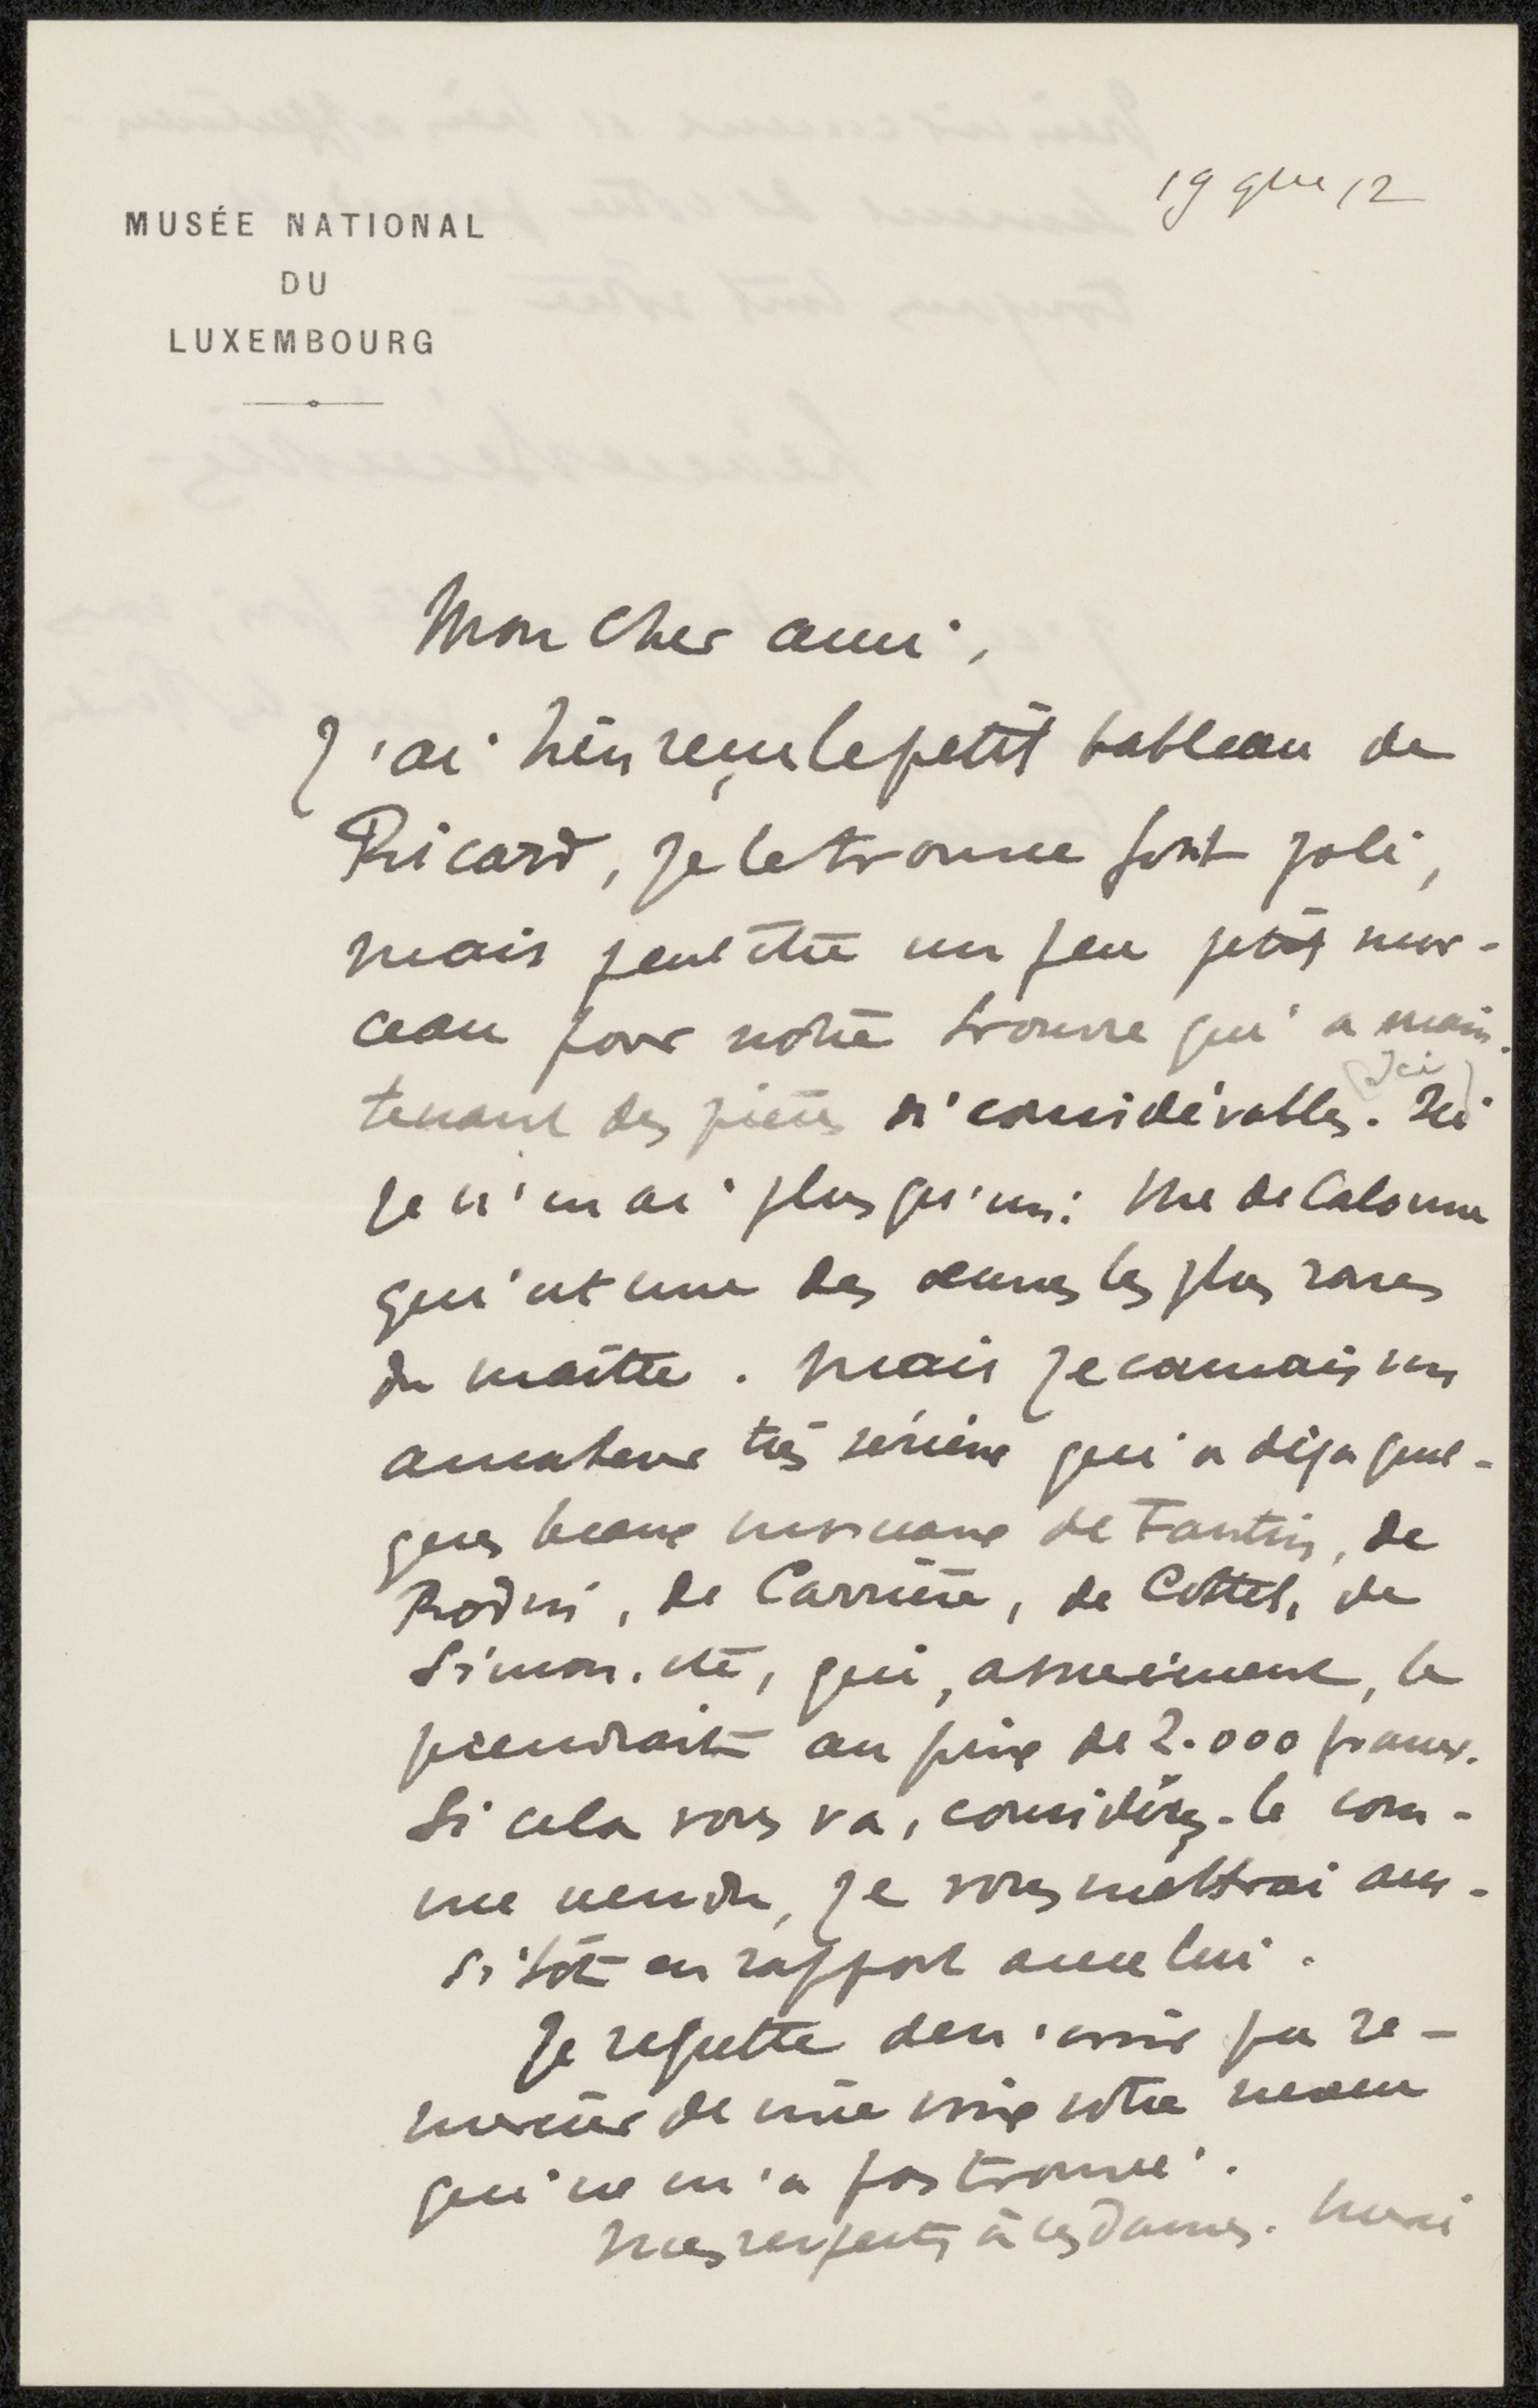 19 9bre 12
MUSÉE NATIONAL
DU
LUXEMBOURG
Mon cher ami,
J'ai bien reçu le petit tableau de
Ricard, je le trouve fort joli,
mais peut être un peu petit mor-
ceau pour notre trouvre qui a main-
tenant des pièces si considérables. Ici
(Ici)
je n'en ai plus qu'un: Mme de Calonne
qui est une des œuvres les plus rares
du maître. Mais je connais un
amateur très sérieux qui a déjà quel-
ques beaux morceaux de Fantin, de
Rodin, de Carrière, de Cottet, de
Simon, etc, qui, assurément, le
prendrait au prix de 2.000 francs.
Si cela vous va, considérez-le com-
me vendu, je vous mettrai aus-
sitôt en rapport avec lui.
Je regrette de n'avoir pu re-
mercier de vive voix votre neveu
qui ne m'a pas trouvé.
Mes respects à ces dames. Merci